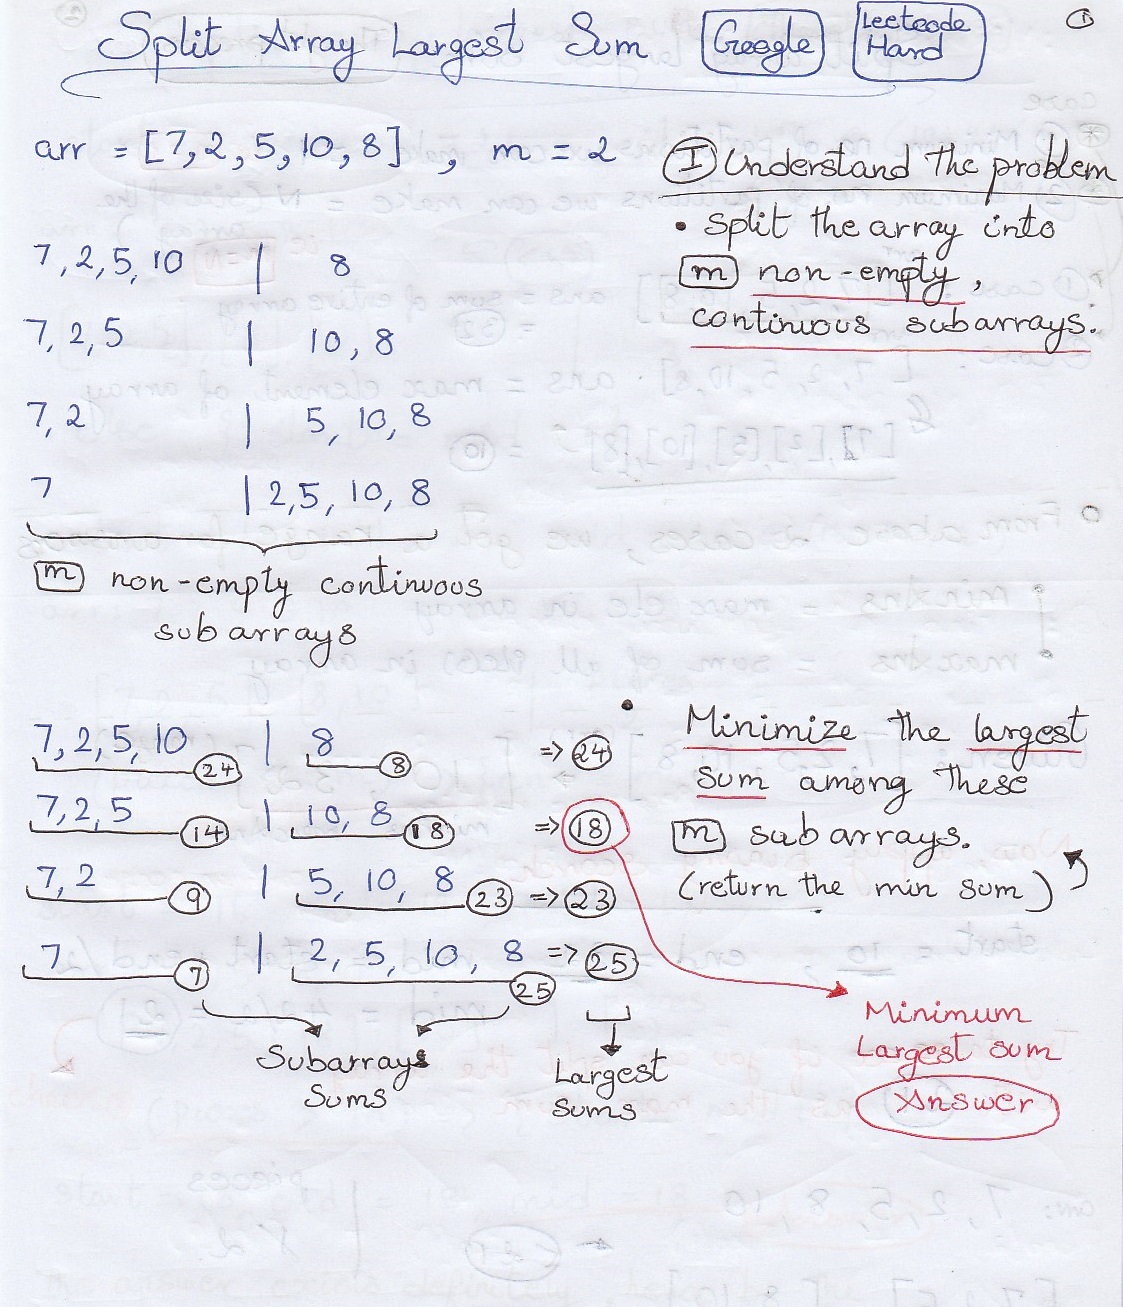 Split Array Largest Sum Google Leetcode Hard 1
arr = [7, 2, 5, 10, 8] , m = 2
I Understand the problem
• Split the array into
m non-empty,
continuous subarrays.
7, 2, 5, 10 | 8
7, 2, 5 | 10, 8
7, 2 | 5, 10, 8
7 | 2, 5, 10, 8
m non-empty continuous
subarrays
7, 2, 5, 10 24 | 8 8 => 24
7, 2, 5 14 | 10, 8 18 => 18
7, 2 9 | 5, 10, 8 23 => 23
7 7 | 2, 5, 10, 8 25 => 25
Subarrays
Sums
Largest
Sums
• Minimize the largest
sum among these
m subarrays.
(return the min sum)
Minimum
Largest sum
Answer